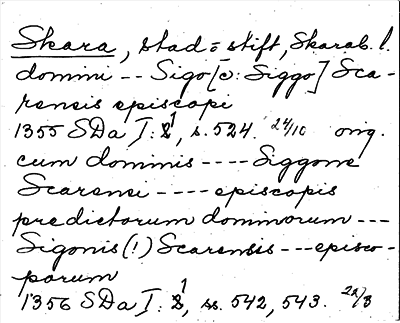 Skara, stad = stift, Skarab. l.
domini -- Sigo [ɔ: Siggo] Sca-
rensis episcopi
1355 SDa I: 1, s. 524. 24/10 orig.
cum dominis ---- Siggone
Scarensi ---- episcopis
predictorum dominorum ---
Sigonis (!) Scarensis --- episco-
porum
1356 SDa I: 1, ss. 542, 543. 22/3